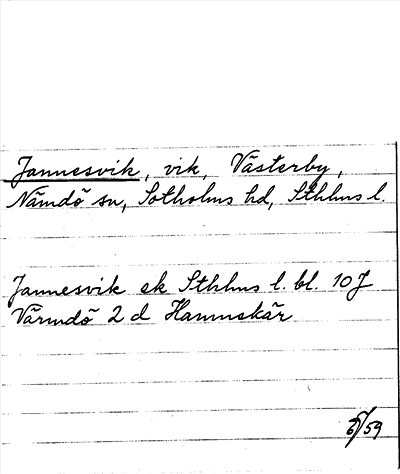 Jannesvik, vik, Västerby,
Nämdö sn, Sotholms hd, Sthlms l.
Jannesvik ek Sthlms l. bl. 10 J
Värmdö 2 d Hamnskär
/59